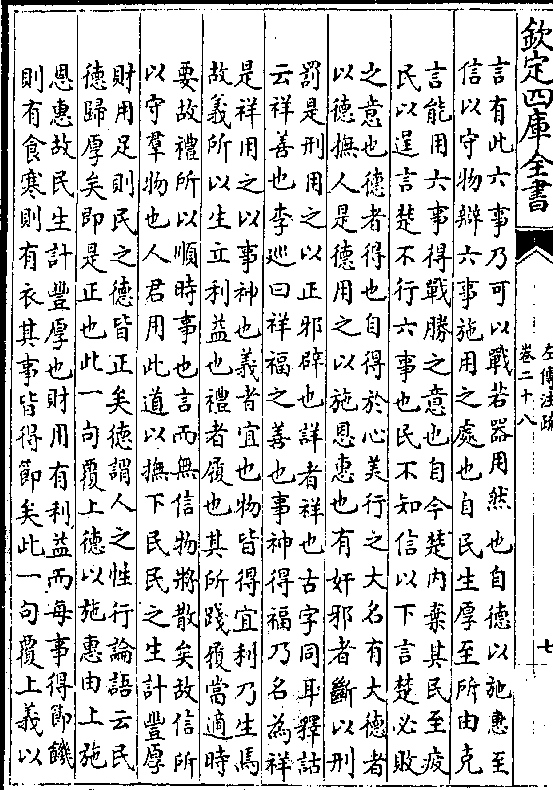 欽定四庫全書
左傳注疏
卷二十八
七
言有此六事乃可以戰若器用然也自德以施惠至
信以守物辯六事施用之處也自民生厚至所由克
言能用六事得戰勝之意也自今楚内棄其民至疲
民以逞言楚不行六事也民不知信以下言楚必敗
之意也德者得也自得於心美行之大名有大德者
以德撫人是德用之以施恩惠也有奸邪者斷以刑
罰是刑用之以正邪辟也詳者祥也古字同耳釋詁
云祥善也李巡曰祥福之善也事神得福乃名為祥
是祥用之以事神也義者宜也物皆得宜利乃生焉
故義所以生立利益也禮者履也其所踐履當適時
要故禮所以順時事也言而無信物將散矣故信所
以守羣物也人君用此道以撫下民民之生計豐厚
財用足則民之德皆正矣德謂人之性行論語云民
德歸厚矣即是正也此一句覆上德以施惠由上施
恩惠故民生計豐厚也財用有利益而每事得節饑
則有食寒則有衣其事皆得節矣此一句覆上義以